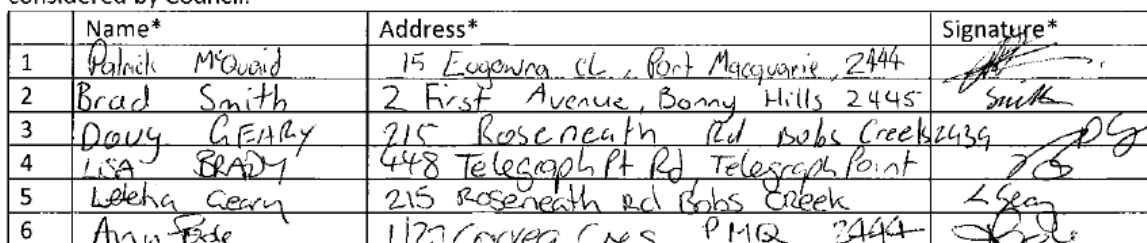 considered by Council.
Name* Address* Signature*
1 Patrick McQuaid 15 Eugowra CL, Port Macquarie, 2444
2 Brad Smith 2 First Avenue, Bonny Hills 2445 Smith
3 Doug GEARY 215 Roseneath Rd Bobs Creek 2439 DG
4 LISA BRADY 448 Telegraph Pt Rd, Telegraph Point
5 Geary 215 Roseneath Rd Bobs Creek L Geary
6 Cres PMQ 2444